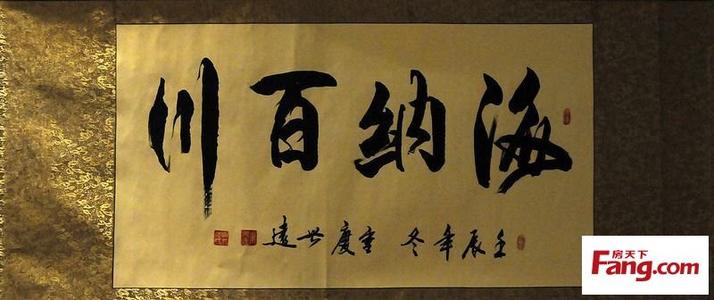 海納百川
壬辰年冬 重慶世遠
房天下
Fang.com